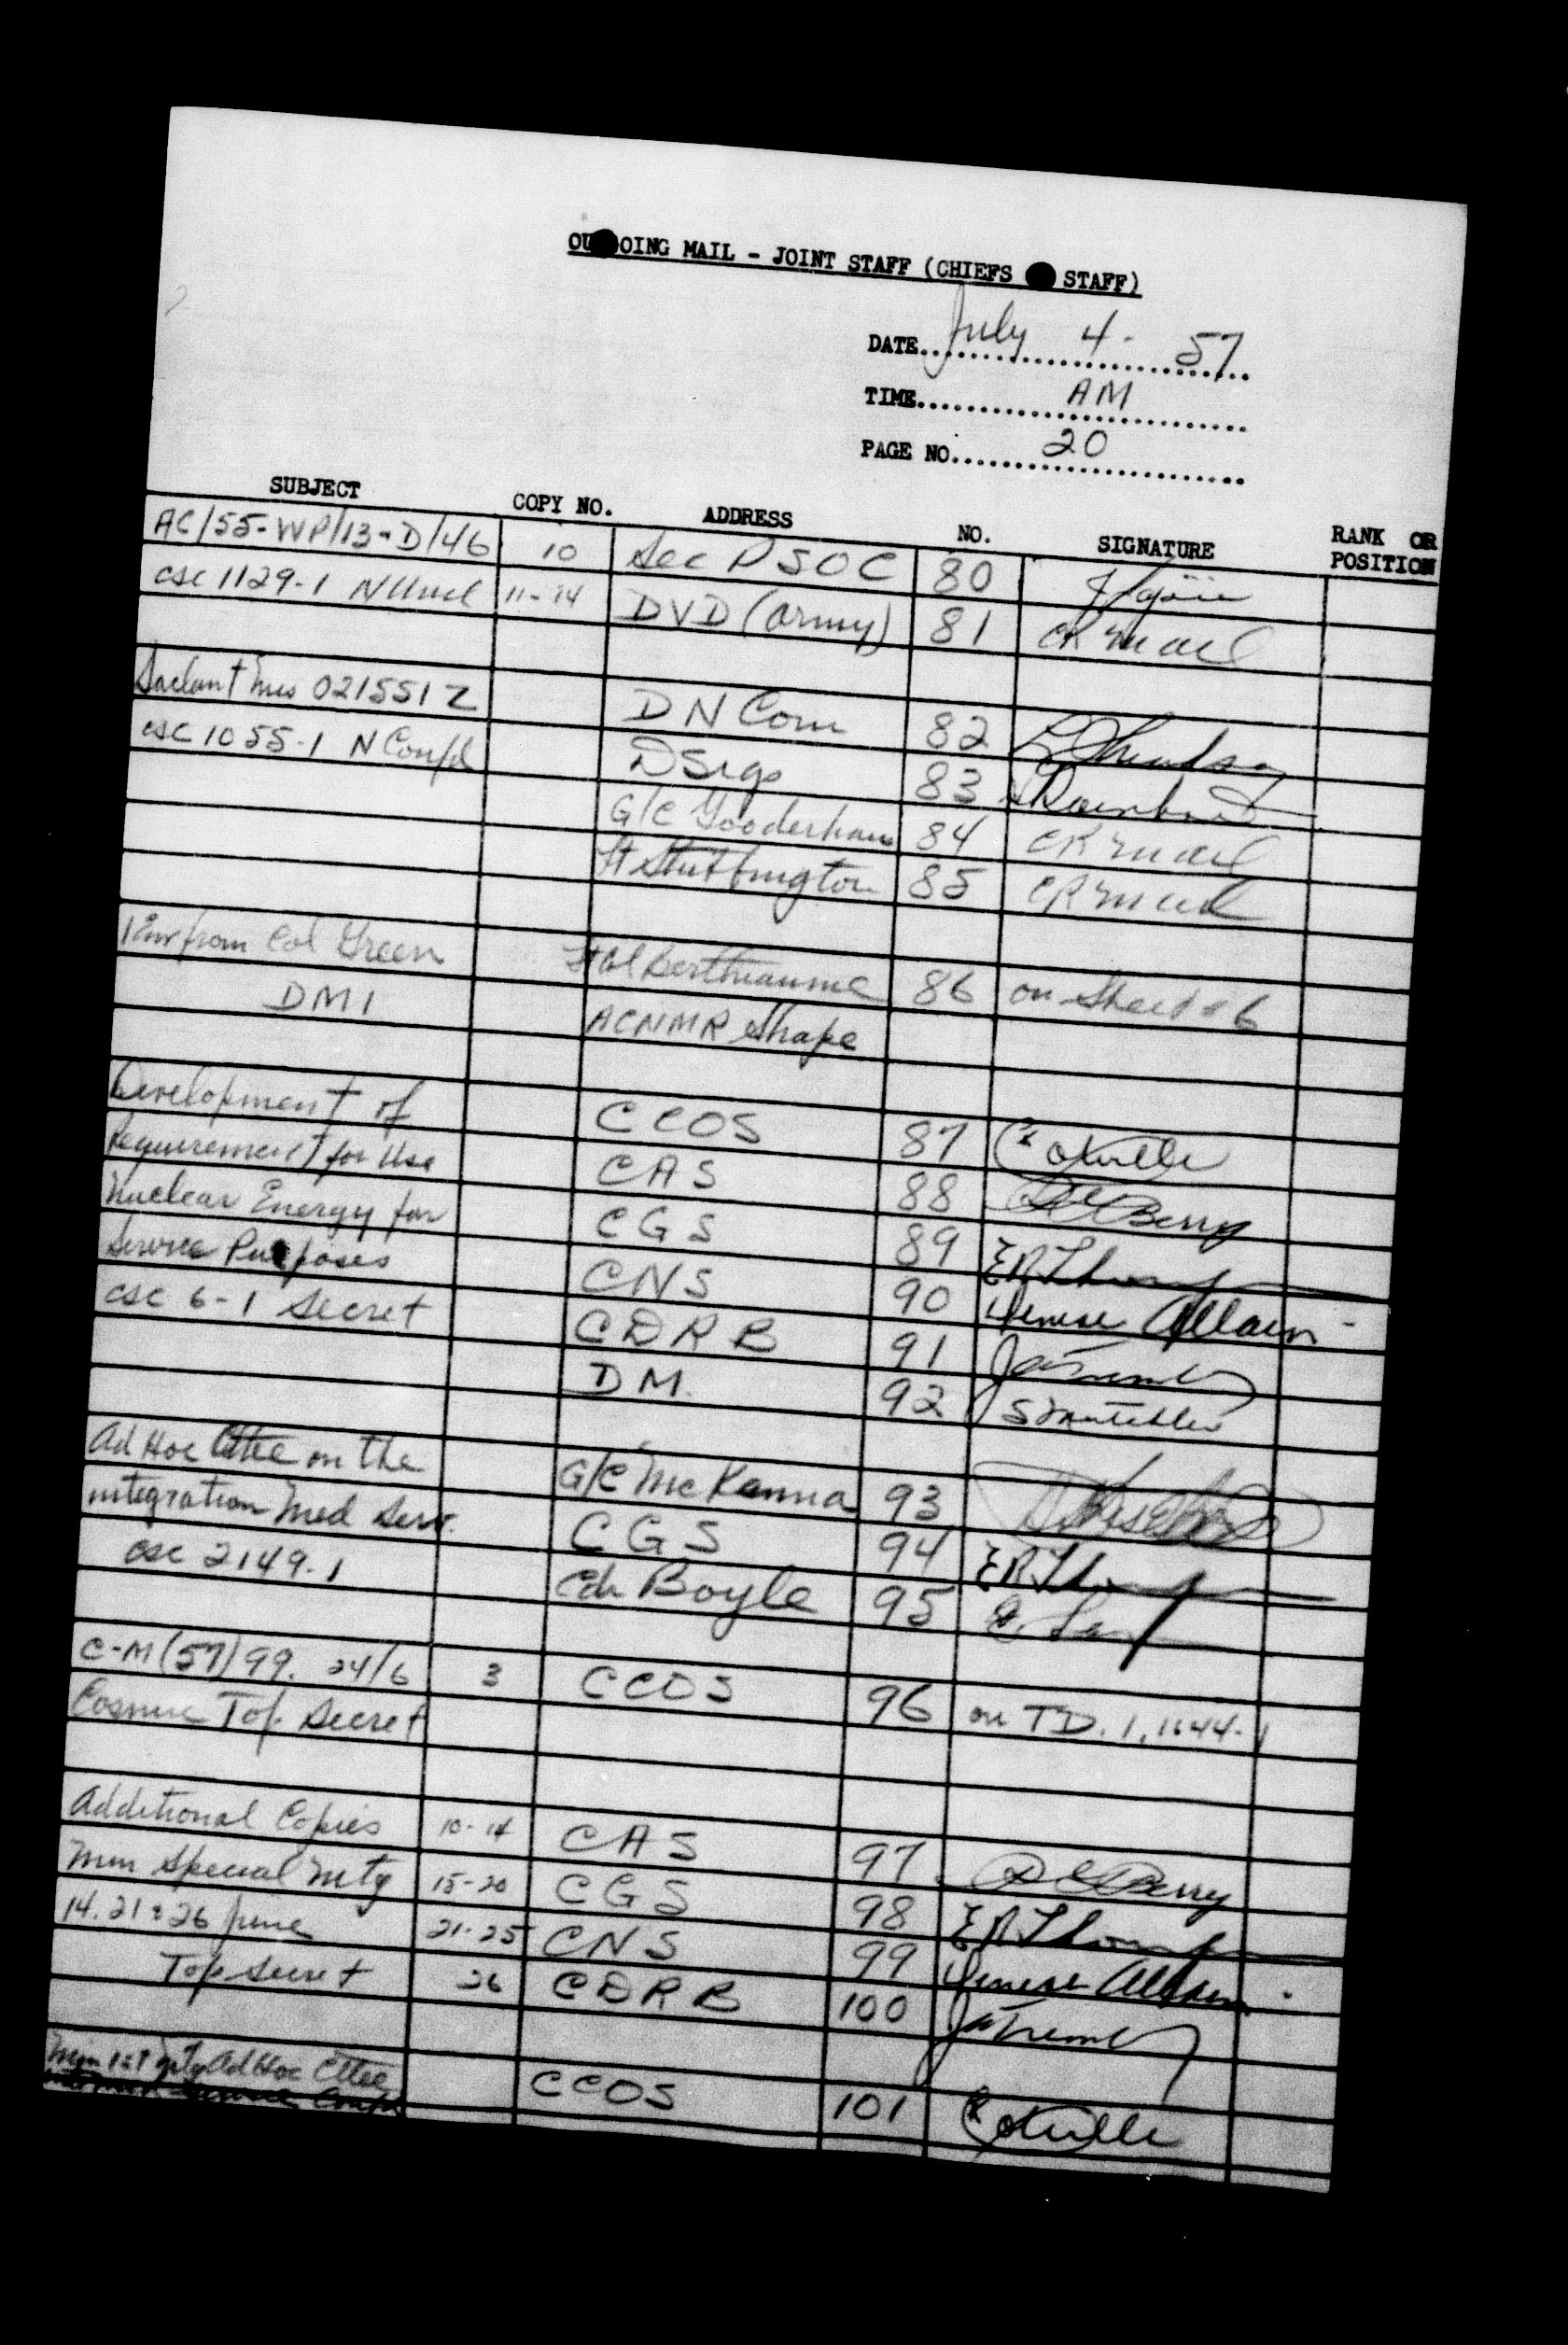 OUTGOING MAIL - JOINT STAFF (CHIEFS OF STAFF)
DATE July 4 - 57
TIME AM
PAGE NO. 20
SUBJECT COPY NO. ADDRESS NO. SIGNATURE RANK OR POSITION
AC/55-WP/13-D/46 10 Sec PSOC 80
CSC 1129-1 N Uncl 11-14 DVD (army) 81
Saclant 021551Z DN Com 82
CSC 1055-1 N Confd DSigs 83
G/C Gooderham 84
85
from Col Green Berthiaume 86 on Sheet 6
DMI ACNMR Shape
Development of CCOS 87
Requirement for Use CAS 88 Berry
Nuclear Energy for CGS 89
Service Purposes CNS 90 Denise Allain
CSC 6-1 Secret CDRB 91
DM. 92
Ad Hoc Cttee on the G/C McKenna 93
integration Med Serv. CGS 94
CSC 2149-1 Cdr Boyle 95
C-M(57)99. 24/6 3 CCOS 96 on TD.
Cosmic Top Secret
Additional Copies 10-14 CAS 97 Berry
Min Special Mtg 15-20 CGS 98
14. 21 & 26 June 21-25 CNS 99 Denise Allain
Top Secret 26 CDRB 100
Min 1st Mtg Ad Hoc Cttee CCOS 101